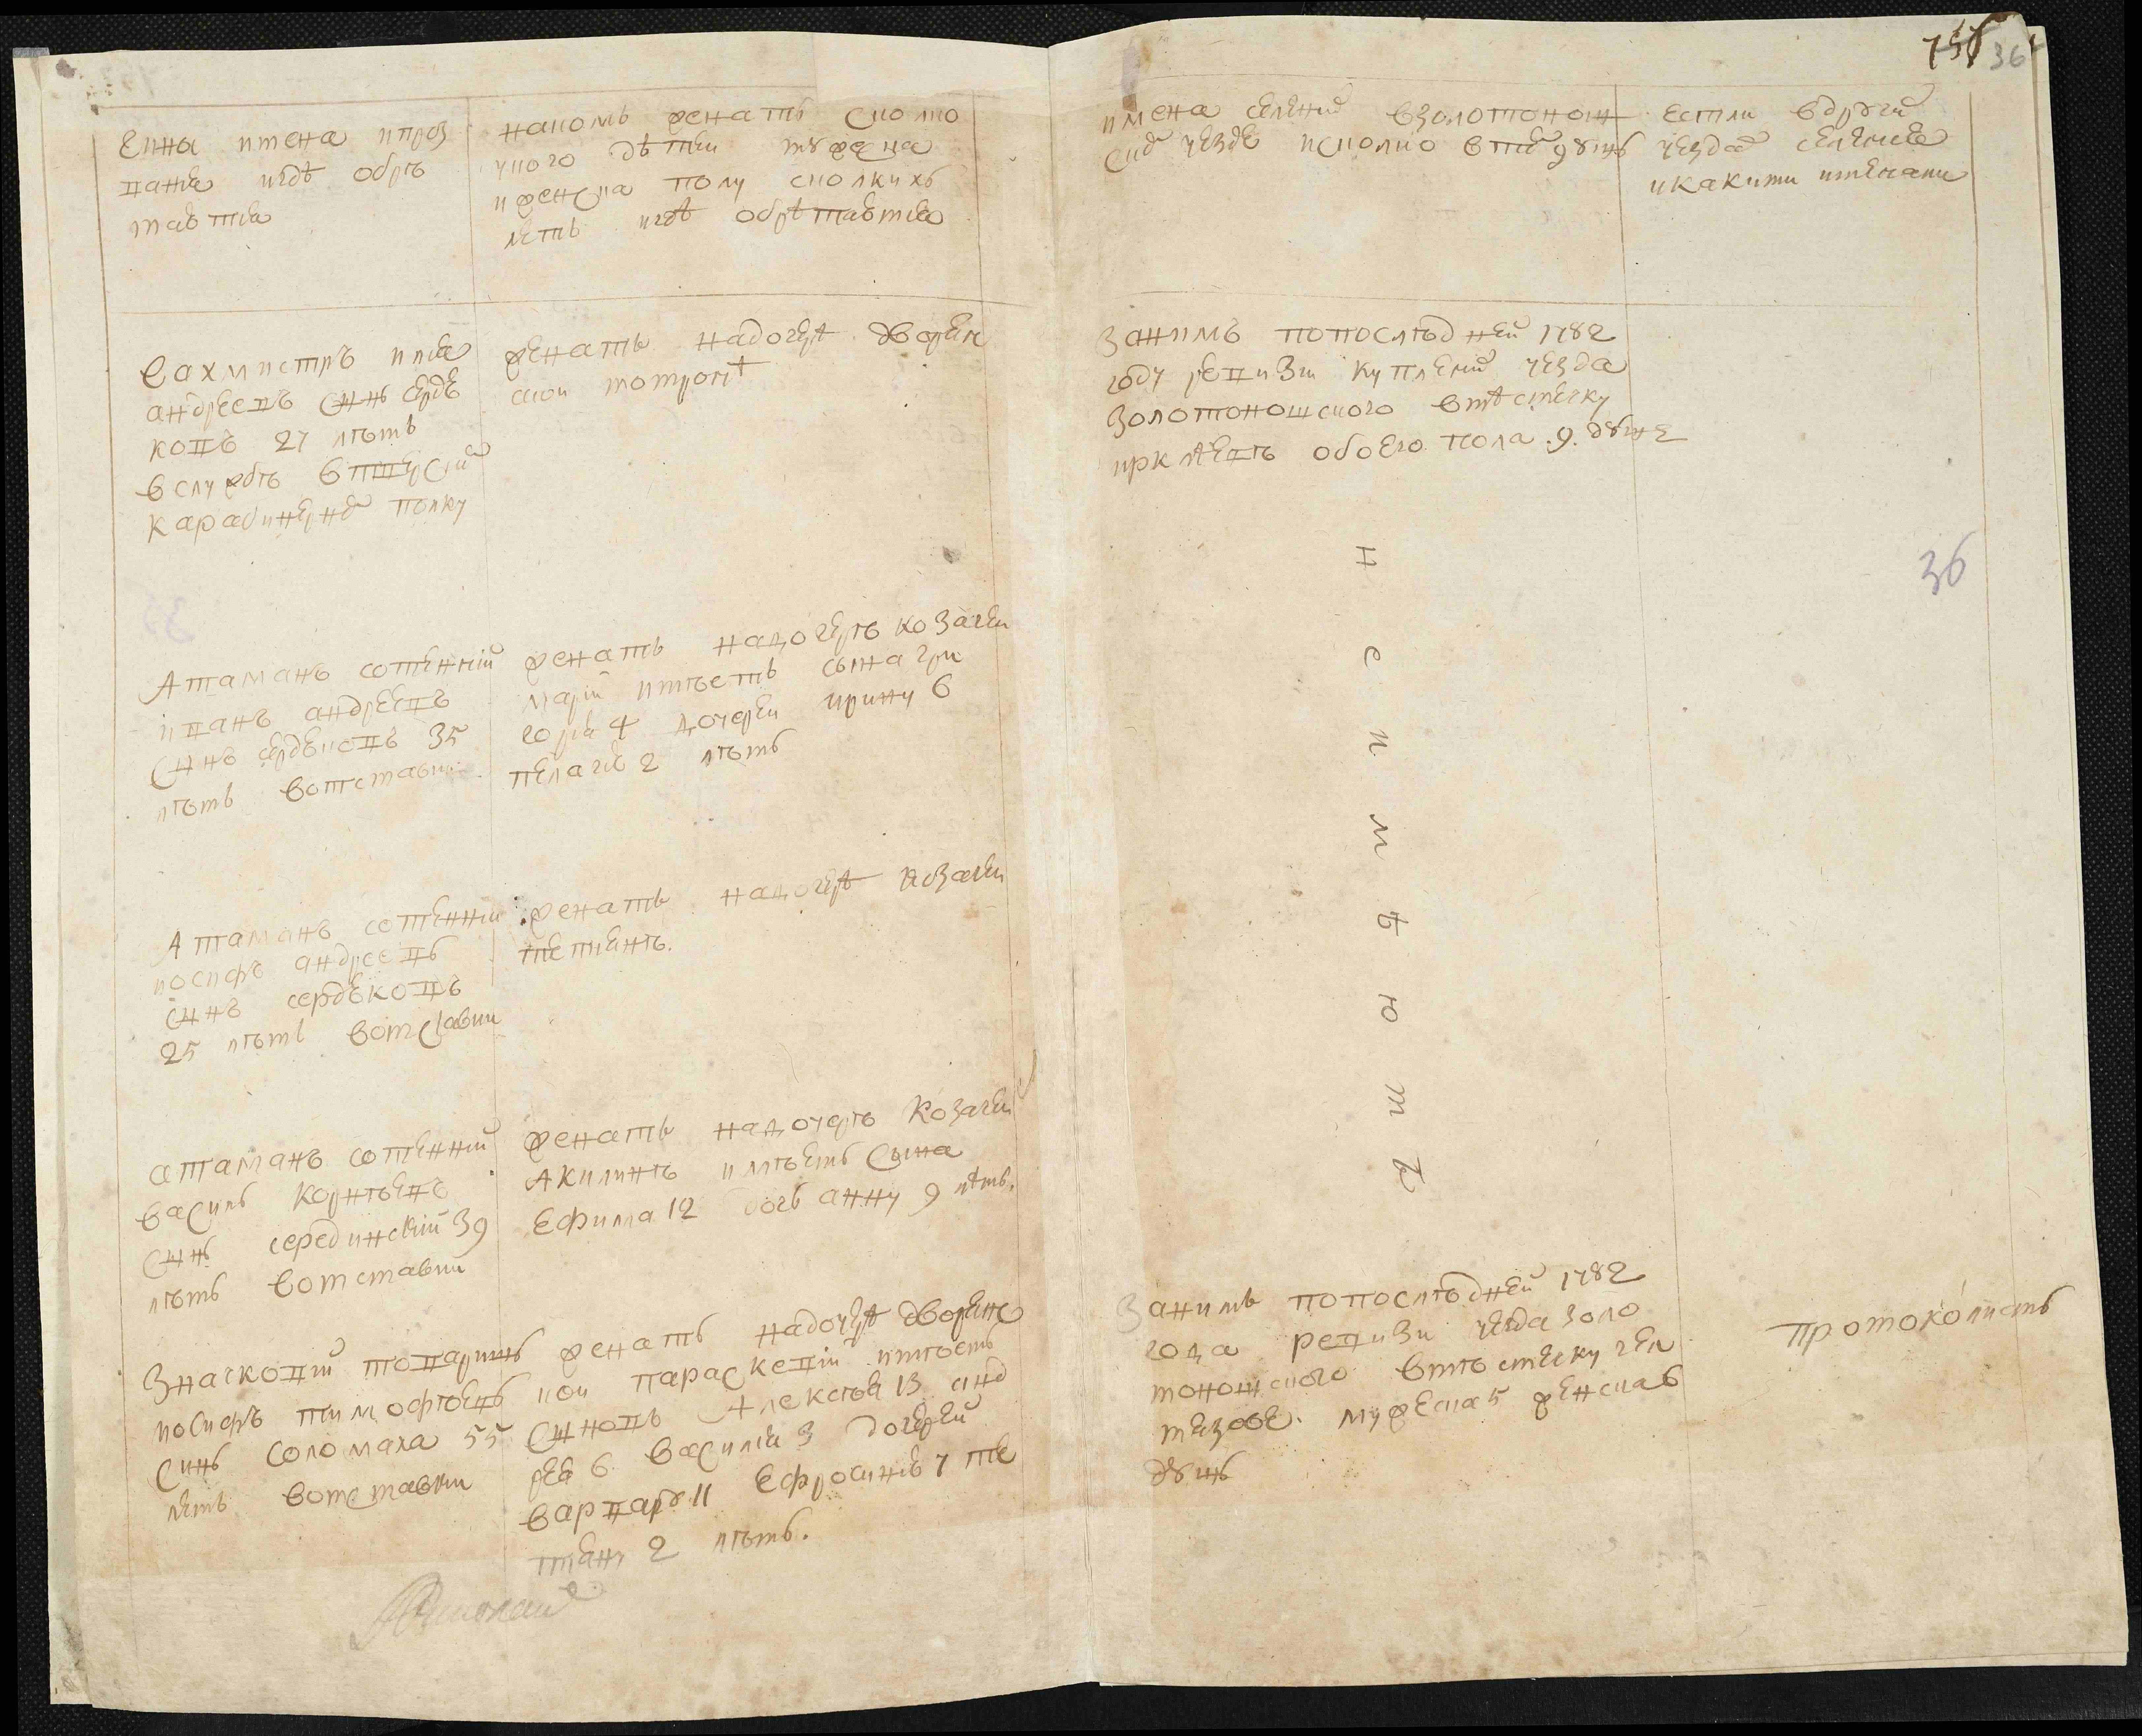 чины имена и проз
вание и где обре
таются
на ком женатъ сколко
у кого детей мужска
и женска полу сколкихъ
летъ и где обретаются
имена селений в золотонош
ском уезде и сколко в них душъ
естли в других
уездах селение
и какими именами
756 36
Вахмистръ илия
андреевъ снъ серде
ковъ 27 летъ
в службе в тверском
карабинерном полку
женатъ на дочери дворян
ской
За нимъ по последней 1782
году ревизии купленных уезда
золотоношского в местечку
обоего пола .9. душъ
36
Атаманъ сотенний
иванъ андреевъ
снъ сердековъ 35
летъ в отставки
женатъ на дочеръ козачей
марии имеетъ сына гри
гория 4 дочерей ирину 6
пелагею 2 летъ
Атаманъ сотенний
иосифъ андреевъ
снъ сердековъ
25 летъ в отставки
женатъ на дочере козачей
тетияне.
атаманъ сотенний
василь корнеевъ
снъ серединский 39
летъ в отставки
женатъ на дочере козачей
Акилине имеетъ сына
Ефима 12 дочъ анну 9 летъ.
не имѣютъ
Значковий товаришъ
иосифъ тимофеевъ
синъ соломаха 55
летъ в отставки
женатъ на дочере дворянс
кой параскевии имеетъ
синовъ Алексея 13 анд
рея 6 василия 3 дочерей
варвару 11 Ефросиню 7 те
тияну 2 летъ.
За нимъ по последней 1782
года ревизи уезда золо
тоношского в местечку гел
мязове мужеска 5 женска 6
душъ
протоколистъ